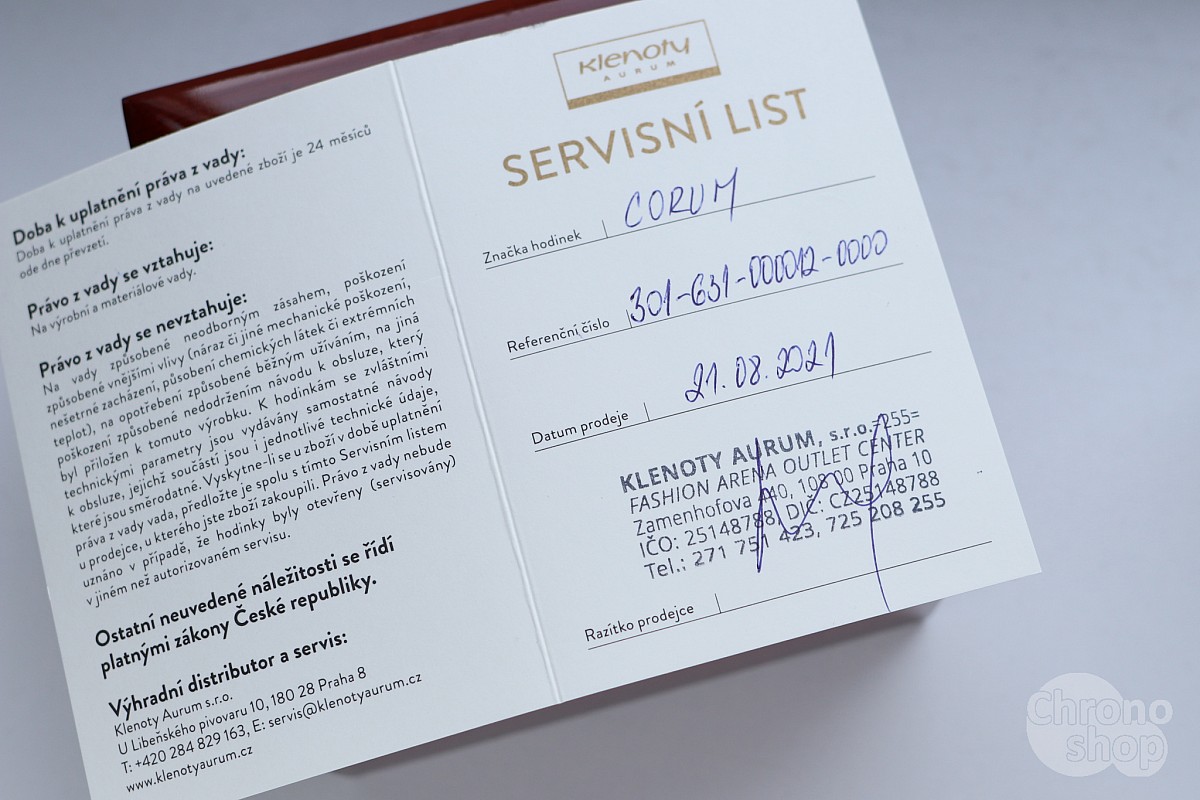 Doba k uplatnění práva z vady:
Doba k uplatnění práva z vady na uvedené zboží je 24 měsíců
ode dne převzetí.
Právo z vady se vztahuje:
Na výrobní a materiálové vady.
Právo z vady se nevztahuje:
Na vady způsobené neodborným zásahem, poškození
způsobené vnějšími vlivy (náraz či jiné mechanické poškození,
nešetrné zacházení, působení chemických látek či extrémních
teplot), na opotřebení způsobené běžným užíváním, na jiná
poškození způsobené nedodržením návodu k obsluze, který
byl přiložen k tomuto výrobku. K hodinkám se zvláštními
technickými parametry jsou vydávány samostatné návody
k obsluze, jejichž součástí jsou i jednotlivé technické údaje,
které jsou směrodatné. Vyskytne-li se u zboží v době uplatnění
práva z vady vada, předložte je spolu s tímto Servisním listem
u prodejce, u kterého jste zboží zakoupili. Právo z vady nebude
uznáno v případě, že hodinky byly otevřeny (servisovány)
v jiném než autorizovaném servisu.
Ostatní neuvedené náležitosti se řídí
platnými zákony České republiky.
Výhradní distributor a servis:
Klenoty Aurum s.r.o.
U Libeňského pivovaru 10, 180 28 Praha 8
T: +420 284 829 163, E: servis@klenotyaurum.cz
www.klenotyaurum.cz
Klenoty
AURUM
SERVISNÍ LIST
Značka hodinek CORUM
Referenční číslo 301-631-000012-0000
Datum prodeje 21.08.2021
KLENOTY AURUM, s.r.o. -255=
FASHION ARENA OUTLET CENTER
Zamenhofova 440, 108 00 Praha 10
IČO: 25148788, DIČ: CZ25148788
Tel.: 271 751 423, 725 208 255
Razítko prodejce
Chrono
shop